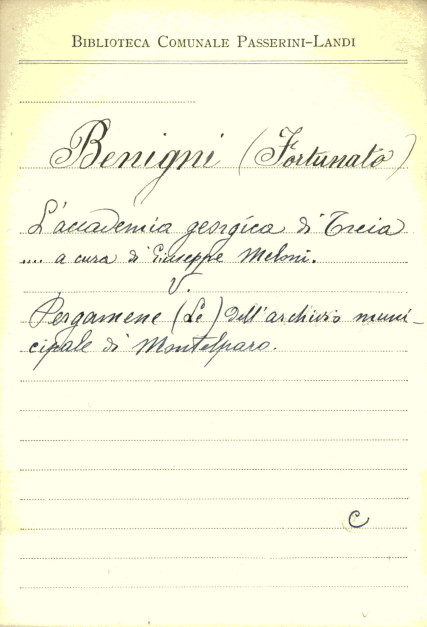 BIBLIOTECA COMUNALE PASSERINI-LANDI
Benigni (Fortunato)
L'accademia georgica di Treia
.... a cura di Giuseppe Meloni.
V.
Pergamene (Le) dell'archivio muni-
cipale di Montelparo.
C